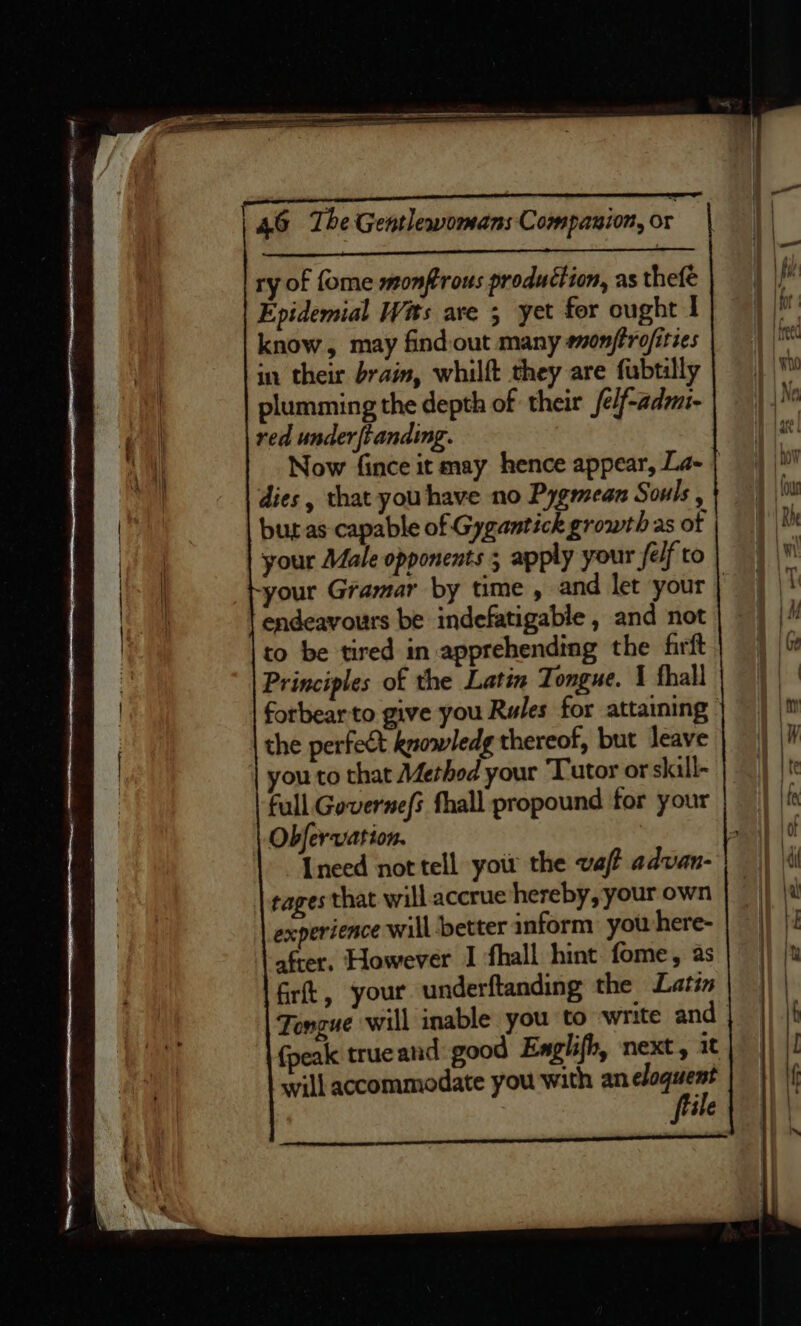 46 The Gentlewomans Companion, or
ry of ſome monſtrous production, as theſe
Epidemial Wits are ; yet for ought I
know, may find out many monſtroſities
in their brain, whilſt they are ſubtilly
plumming the depth of their ſelf-admi-
red underſtanding.
Now ſince it may hence appear, La-
dies, that you have no Pygmean Souls,
but as capable of Gygantick growth as of
your Male opponents ; apply your ſelf to
your Gramar by time, and let your
endeavours be indefatigable, and not
to be tired in apprehending the firſt
Principles of the Latin Tongue. I ſhall
forbear to give you Rules for attaining
the perfect knowledg thereof, but leave
you to that Method your Tutor or skill-
full Governeſs ſhall propound for your
Obſervation.
I need not tell you the vaſt advan-
tages that will accrue hereby, your own
experience will better inform you here-
after. However I ſhall hint ſome, as
firſt, your underſtanding the Latin
Tongue will inable you to write and
ſpeak true and good Engliſh, next, it
will accommodate you with an eloquent
ſtile
for
freed
who
are
how